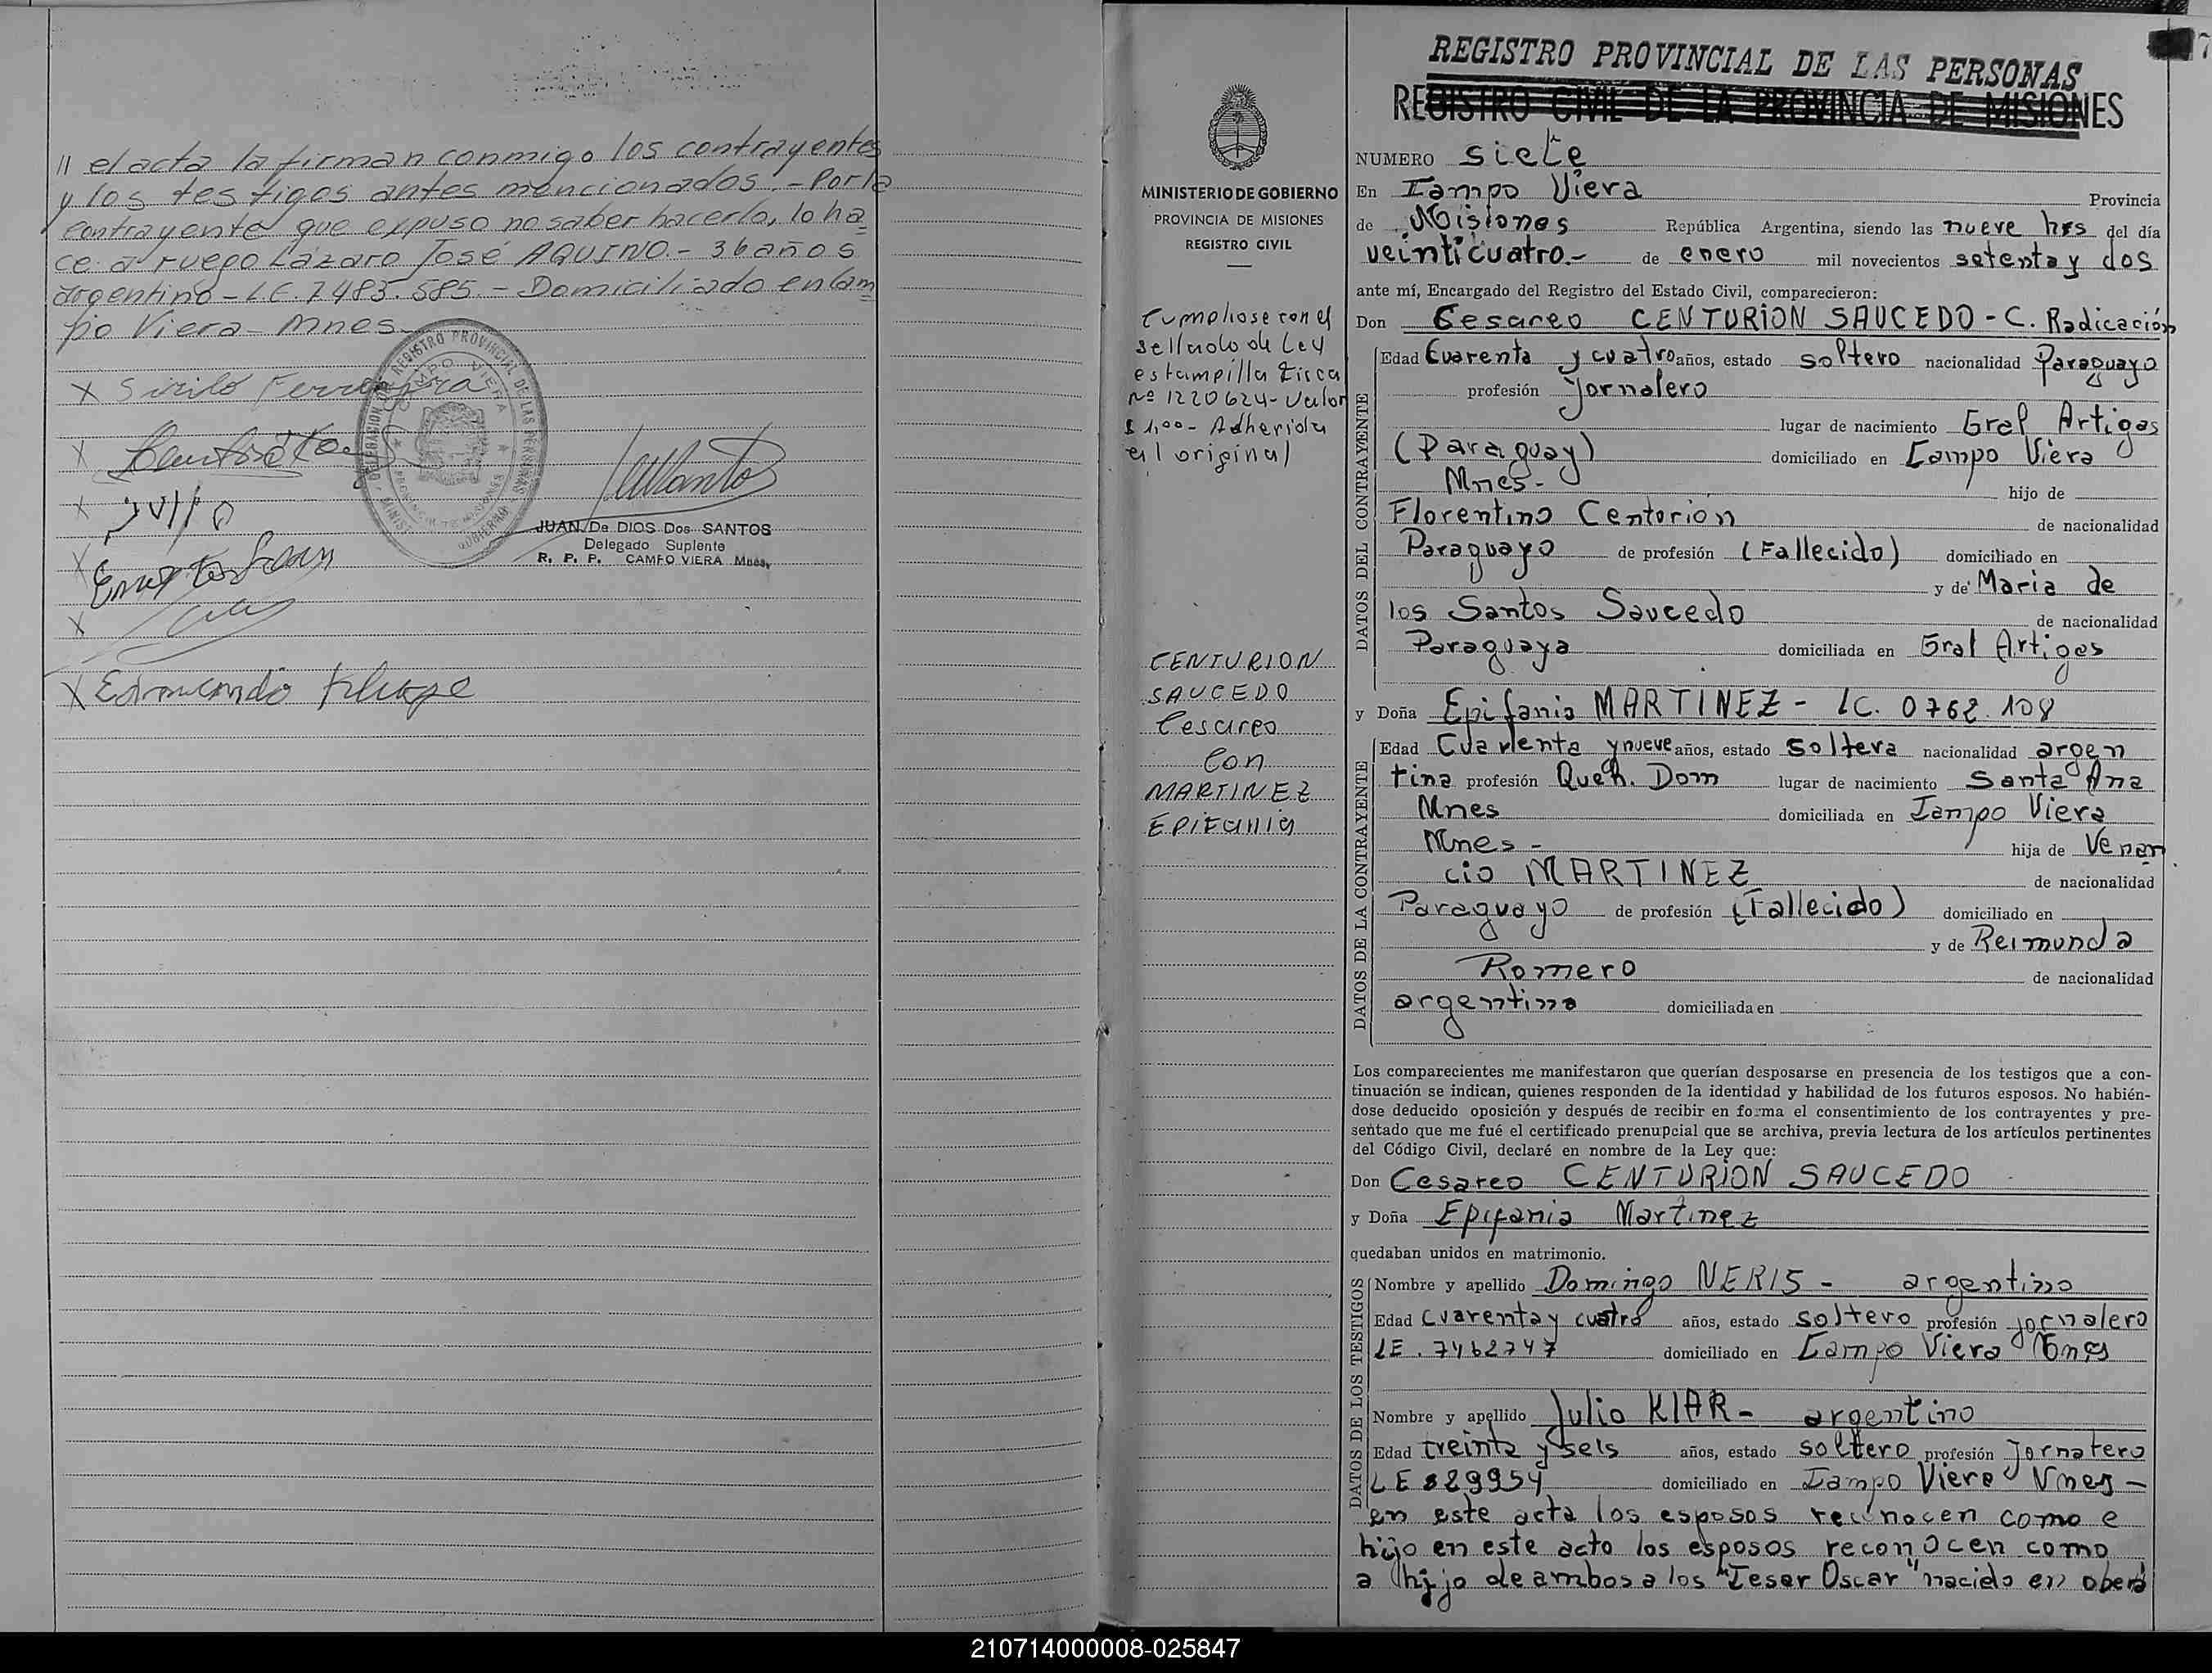 // el acta la firman conmigo los contrayentes
y los testigos antes mencionados.- Por la
contrayente que expuso no saber hacerlo, lo ha
ce a ruego Lázaro José AQUINO.- 36 años
argentino - L.E. 7.485.585.- Domiciliado en Cam
po Viera - Mnes
X Sirilo Ferreyra
X
X Julio
X
X
X Edmundo
JUAN De DIOS Dos SANTOS
Delegado Suplente
R. P. P. CAMPO VIERA Mnes.
MINISTERIO DE GOBIERNO
PROVINCIA DE MISIONES
REGISTRO CIVIL
Cumpliose con el
sellado de Ley
estampilla Fisca
Nº 1220624 - Valor
$ 1,00 - Adherida
en l original
CENTURION
SAUCEDO
Cesareo
Con
MARTINEZ
EPIFANIA
7
REGISTRO PROVINCIAL DE LAS PERSONAS
REGISTRO CIVIL DE LA PROVINCIA DE MISIONES
NUMERO siete
En Campo Viera Provincia
de Misiones República Argentina, siendo las nueve hrs del día
veinticuatro.- de enero mil novecientos setenta y dos
ante mí, Encargado del Registro del Estado Civil, comparecieron:
Don Cesareo CENTURION SAUCEDO - C. Radicación
DATOS DEL CONTRAYENTE
Edad Cuarenta y cuatro años, estado soltero nacionalidad Paraguayo
profesión jornalero
lugar de nacimiento Gral Artigas
(Paraguay) domiciliado en Campo Viera
Mnes.- hijo de
Florentino Centurion de nacionalidad
Paraguayo de profesión (Fallecido) domiciliado en
y de Maria de
los Santos Saucedo de nacionalidad
Paraguaya domiciliada en Gral Artigas
y Doña Epifania MARTINEZ - LC. 0762.108
DATOS DE LA CONTRAYENTE
Edad Cuarenta y nueve años, estado soltera nacionalidad argen
tina profesión Queh. Dom lugar de nacimiento Santa Ana
Mnes domiciliada en Campo Viera
Mnes - hija de Venan
cio MARTINEZ de nacionalidad
Paraguayo de profesión (Fallecido) domiciliado en
y de Reimunda
Romero de nacionalidad
argentina domiciliada en
Los comparecientes me manifestaron que querían desposarse en presencia de los testigos que a con-
tinuación se indican, quienes responden de la identidad y habilidad de los futuros esposos. No habién-
dose deducido oposición y después de recibir en forma el consentimiento de los contrayentes y pre-
sentado que me fué el certificado prenupcial que se archiva, previa lectura de los artículos pertinentes
del Código Civil, declaré en nombre de la Ley que:
Don Cesareo CENTURION SAUCEDO
y Doña Epifania Martinez
quedaban unidos en matrimonio.
DATOS DE LOS TESTIGOS
Nombre y apellido Domingo NERIS - argentino
Edad cuarenta y cuatro años, estado soltero profesión jornalero
LE. 7462747 domiciliado en Campo Viera Mnes
Nombre y apellido Julio KIAR - argentino
Edad treinta y seis años, estado soltero profesión Jornalero
LE 829954 domiciliado en Campo Viera Mnes -
en este acta los esposos reconocen como e
hijo en este acto los esposos reconocen como
a hijo de ambos a los "Cesar Oscar" nacido en oberá
210714000008-025847